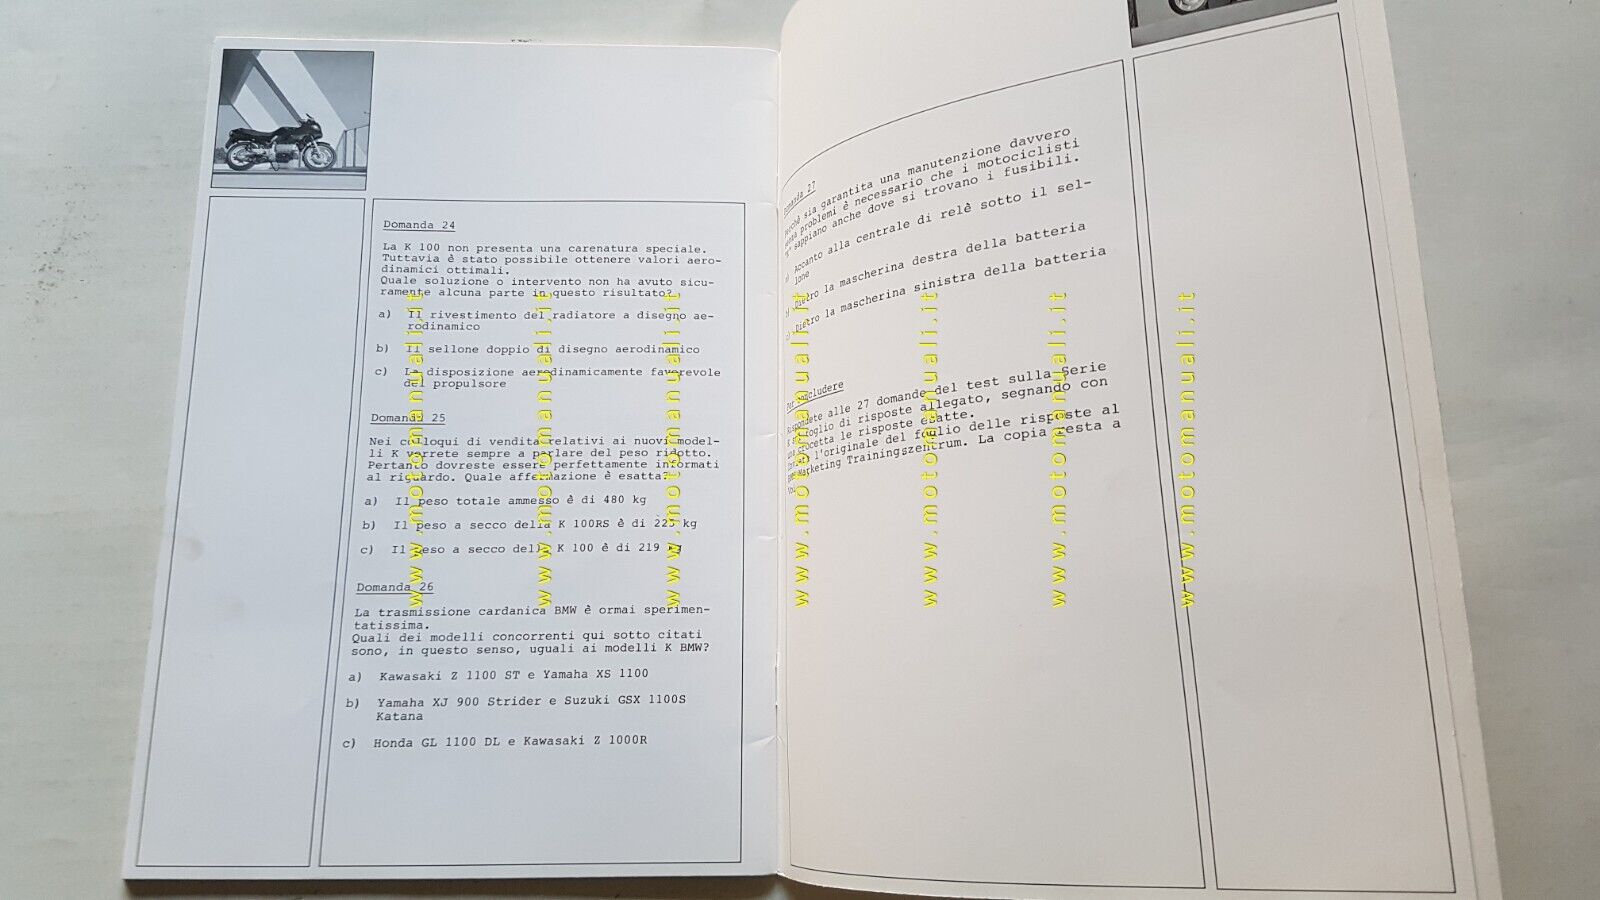 Domanda 24
La K 100 non presenta una carenatura speciale.
Tuttavia è stato possibile ottenere valori aero-
dinamici ottimali.
Quale soluzione o intervento non ha avuto sicu-
ramente alcuna parte in questo risultato?
a) Il rivestimento del radiatore a disegno ae-
rodinamico
b) Il sellone doppio di disegno aerodinamico
c) La disposizione aerodinamicamente favorevole
del propulsore
Domanda 25
Nei colloqui di vendita relativi ai nuovi model-
li K vorrete sempre a parlare del peso ridotto.
Pertanto dovreste essere perfettamente informati
al riguardo. Quale affermazione è esatta?
a) Il peso totale ammesso è di 480 kg
b) Il peso a secco della K 100RS è di kg
c) Il peso a secco della K 100 è di 219 kg
Domanda 26
La trasmissione cardanica BMW è ormai sperimen-
tatissima.
Quali dei modelli concorrenti qui sotto citati
sono, in questo senso, uguali ai modelli K BMW?
a) Kawasaki Z 1100 ST e Yamaha XS 1100
b) Yamaha XJ 900 Strider e Suzuki GSX 1100S
Katana
c) Honda GL 1100 DL e Kawasaki Z 1000R
Domanda 27
Perchè sia garantita una manutenzione davvero
senza problemi è necessario che i motociclisti
"K" sappiano anche dove si trovano i fusibili.
a) Accanto alla centrale di relè sotto il sel-
lone
b) Dietro la mascherina destra della batteria
c) Dietro la mascherina sinistra della batteria
Per concludere
Rispondete alle 27 domande del test sulla Serie
K sul foglio di risposte allegato, segnando con
una crocetta le risposte esatte.
l'originale del foglio delle risposte al
BMW Marketing Trainingszentrum. La copia resta a
Voi.
www.motomanuali.it
www.motomanuali.it
www.motomanuali.it
www.motomanuali.it
www.motomanuali.it
www.motomanuali.it
www.motomanuali.it